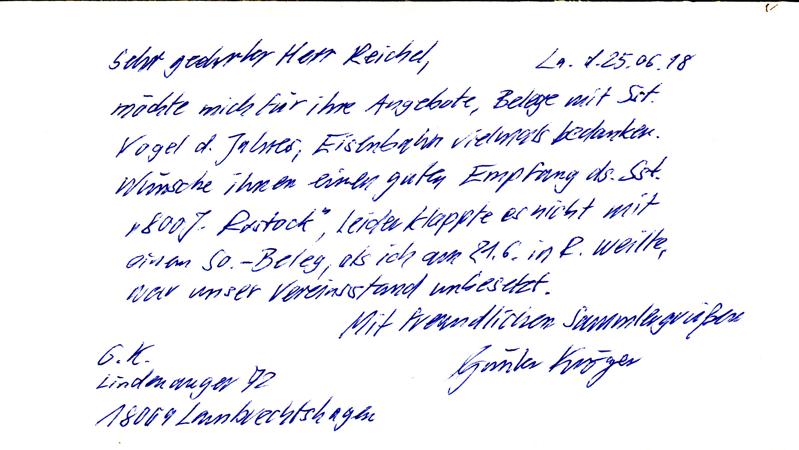 Sehr geehrter Herr Reichel, La. d. 25.06.18
möchte mich für ihre Angebote, Belege mit Sst.
Vogel d. Jahres, Eisenbahn vielmals bedanken.
Wünsche ihnen einen guten Empfang ds. Sst.
"800 J. Rostock", leider klappte es nicht mit
einem So.-Beleg, als ich am 21.6. in R. weilte,
war unser Vereinsstand unbesetzt.
Mit freundlichen Sammlergrüßen
Günter Kröger
G. K.
Lindenanger 72
18069 Lambrechtshagen